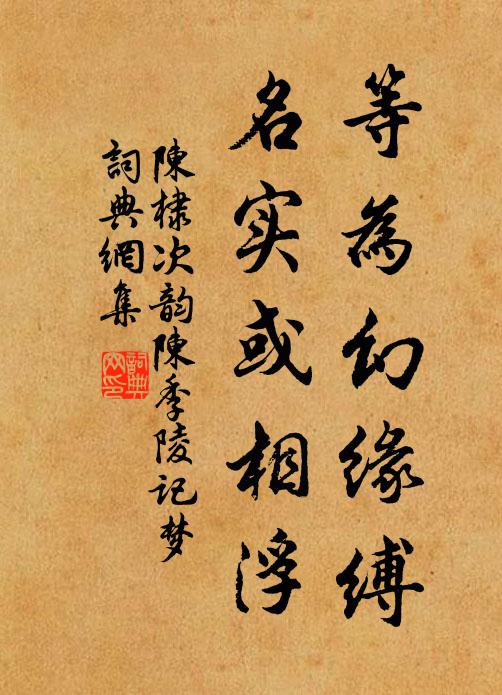 等為幻緣縛
名实或相浮
陳棣次韵陳季陵记梦
詞典網集
詞典
网印